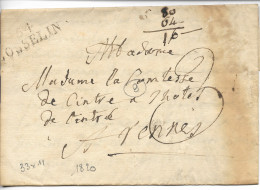 JOSSELIN
80
04
16
Madame
Madame la Comtesse
de Cintré a l'hotel
de Cintré
A Rennes
33x11
1820